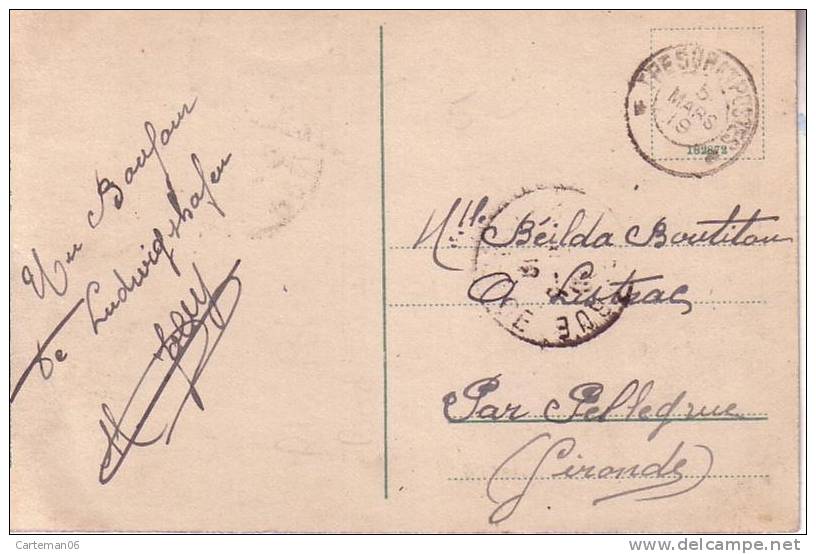 Un Bonjour
de Ludwigshafen
TRESOR ET POSTES
5
MARS
19
182872
Mlle Béilda Boutitou
A Lustrac
Par Pellegrue
(Gironde)
Carteman06
delcampe.net